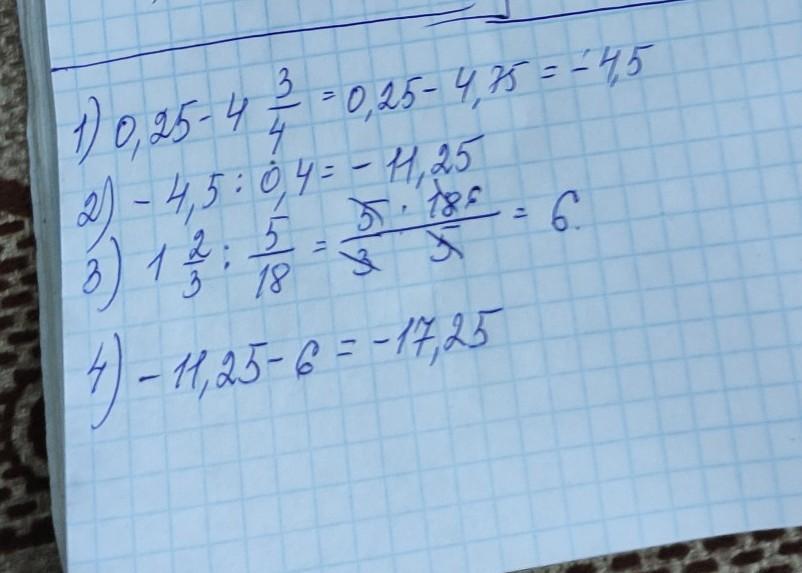 1) 0,25 - 4 3/4 = 0,25 - 4,75 = -4,5
2) -4,5 : 0,4 = -11,25
3) 1 2/3 : 5/18 = 5 · 18 6 / 3 5 = 6.
4) -11,25 - 6 = -17,25